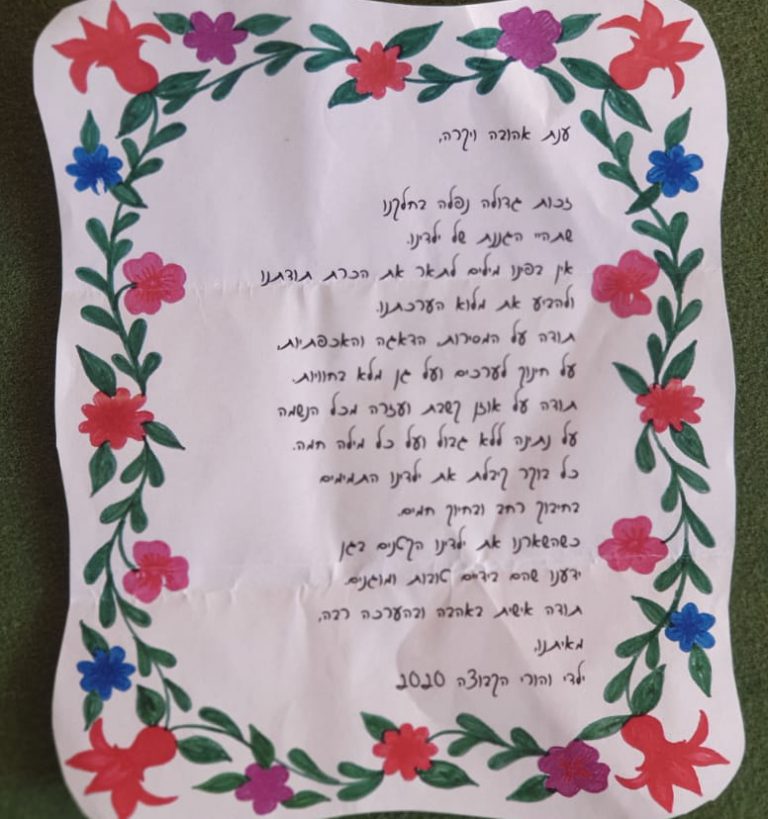 ענת אהובה ויקרה,
זכות גדולה נפלה בחלקנו
שתהיי הגננת של ילדינו.
אין בפינו מילים לתאר את הכרת תודתנו
ולהביע את מלוא הערכתנו.
תודה על המסירות, הדאגה והאכפתיות,
על חינוך לערכים ועל גן מלא בחוויות.
תודה על אוזן קשבת ועזרה מכל הנשמה
על נתינה ללא גבול ועל כל מילה חמה.
כל בוקר קיבלת את ילדינו התמימים
בחיבוק רחב ובחיוך חמים.
כשהשארנו את ילדינו הקטנים בגן
ידענו שהם בידיים טובות ומוגנים.
תודה אישית באהבה ובהערכה רבה,
מאיתנו,
ילדי והורי הקבוצה 2020